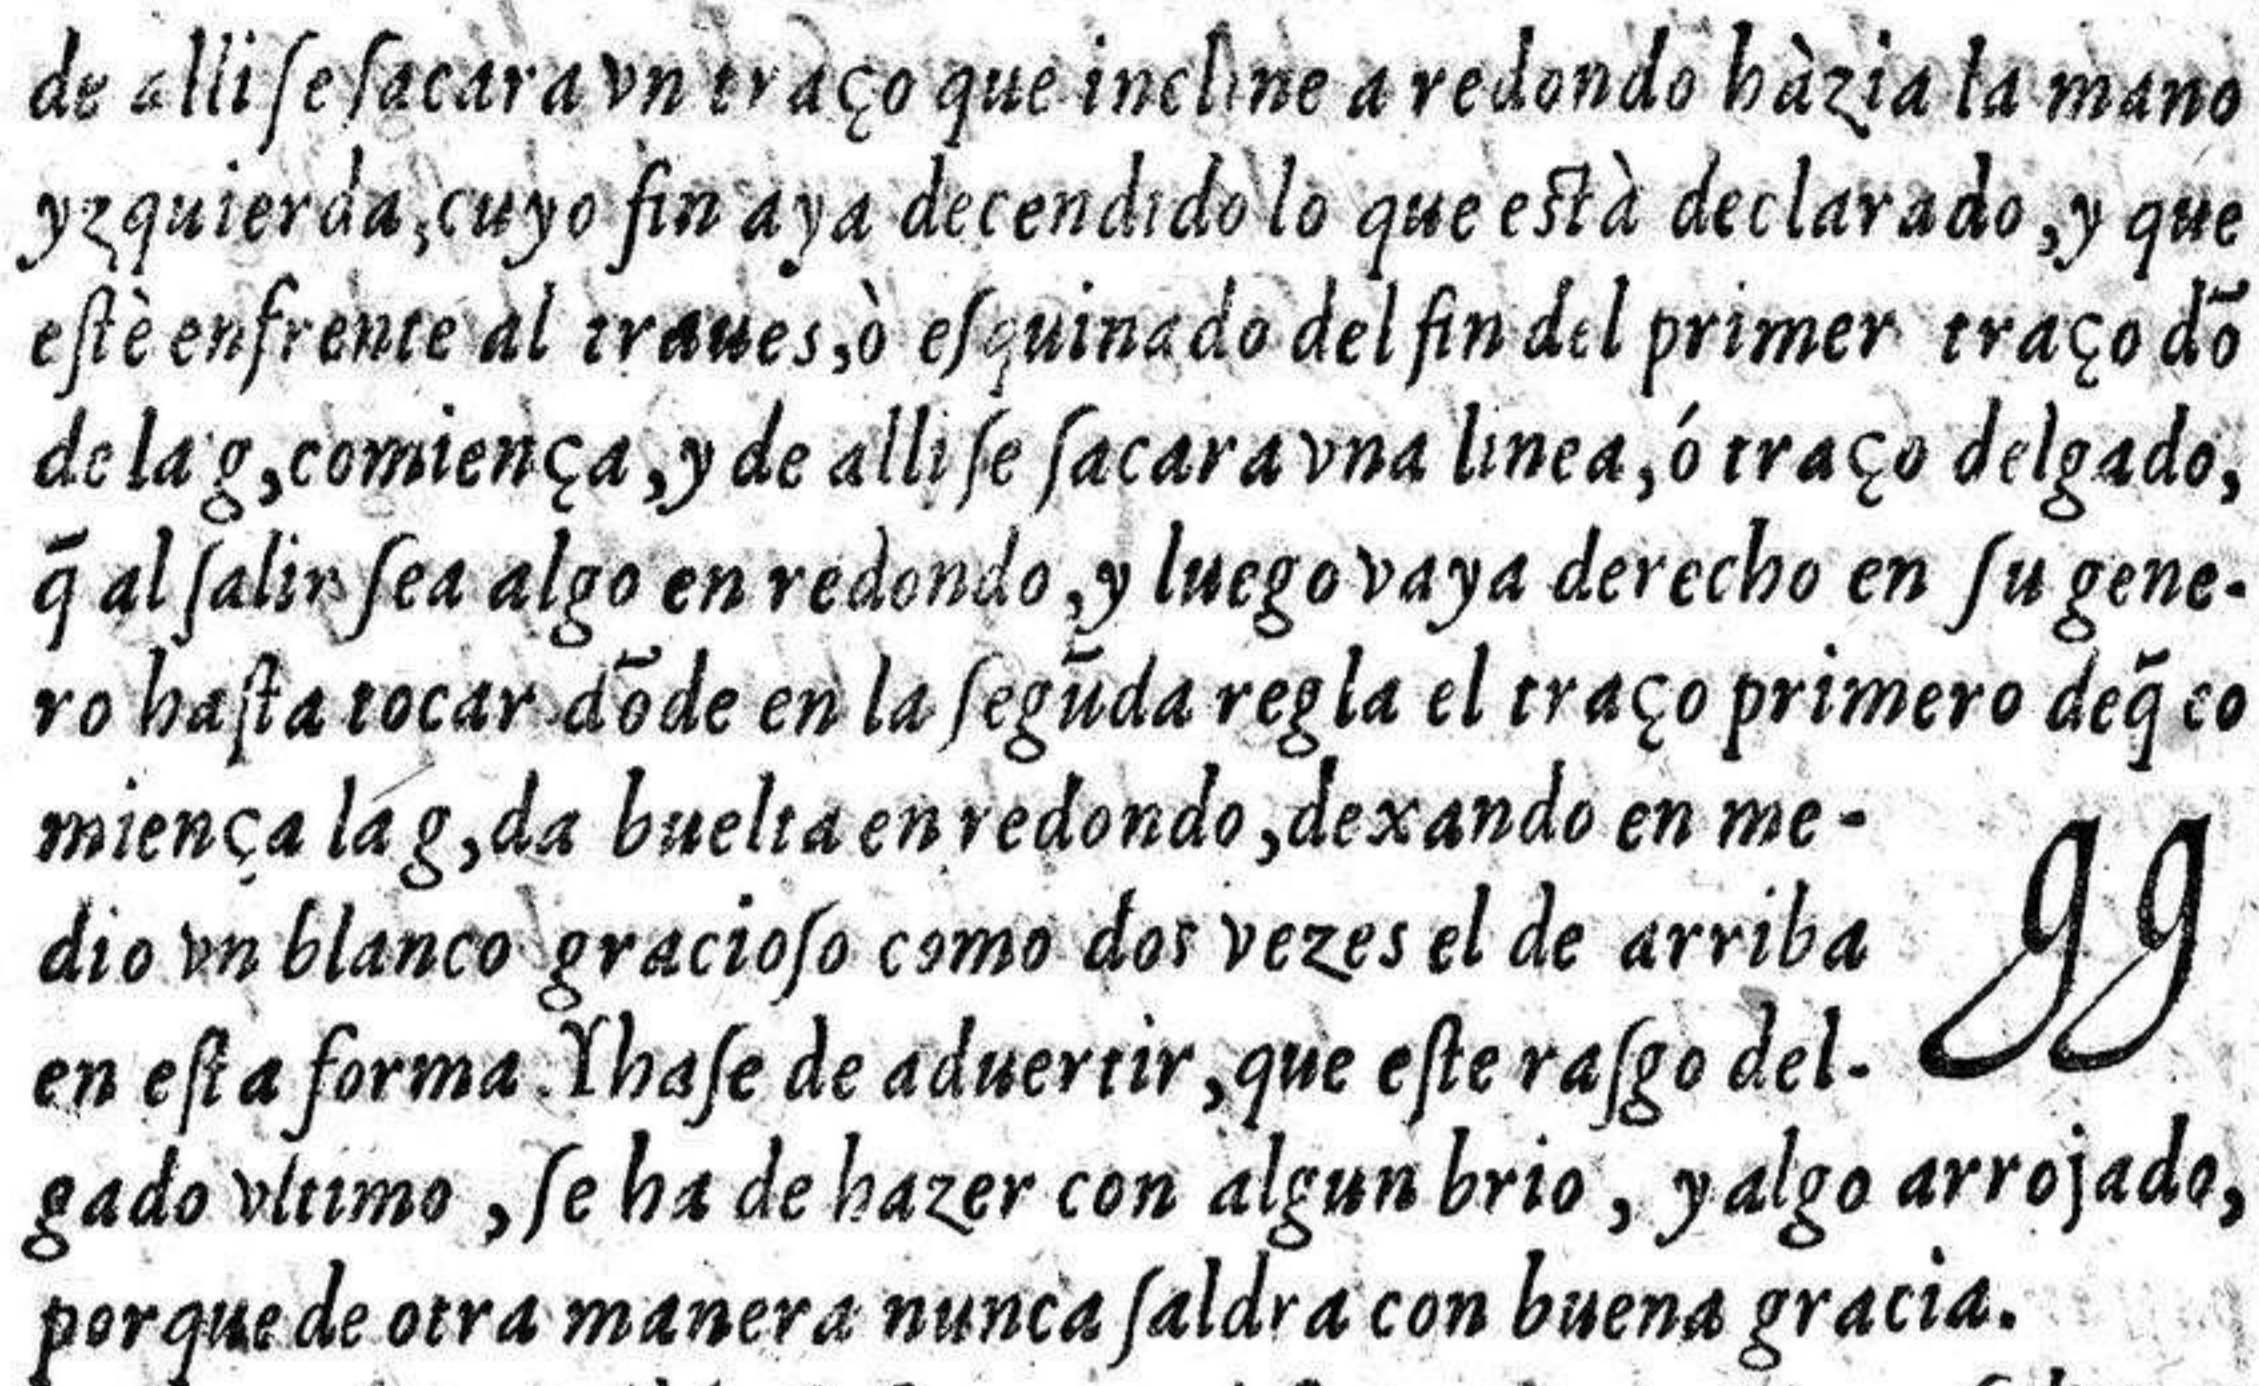 de alli ſe ſacara vn traço que incline a redondo hàzia la mano
yzquierda, cuyo fin aya decendido lo que eſtà declarado, y que
eſtè enfrente al traues, ò eſquinado del fin del primer traço dõ
de la g, comiença, y de alli ſe ſacara vna linea, ó traço delgado,
q̃ al ſalir ſea algo en redondo, y luego vaya derecho en ſu gene-
ro haſta tocar dõde en la ſegũda regla el traço primero deq̃ co
miença la g, da buelta en redondo, dexando en me-
dio vn blanco gracioſo como dos vezes el de arriba
en eſta forma. Y haſe de aduertir, que eſte raſgo del-
gg
gado vltimo, ſe ha de hazer con algun brio, y algo arrojado,
porque de otra manera nunca ſaldra con buena gracia.